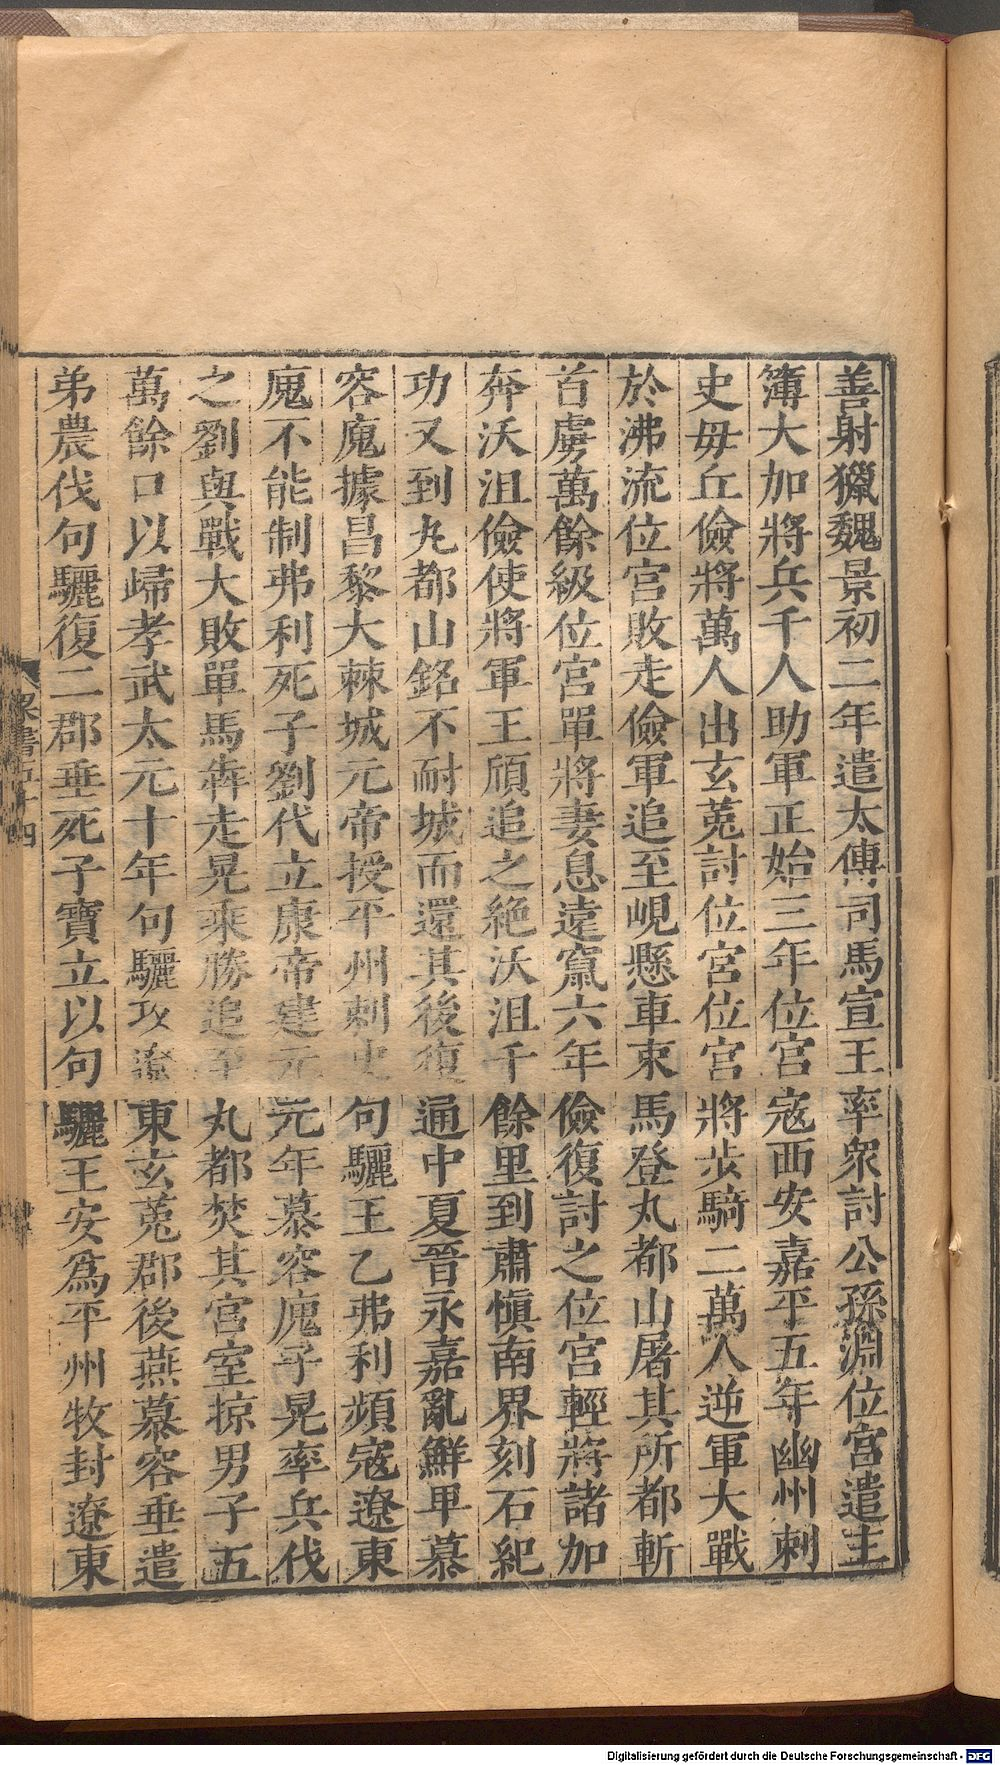 善射獵魏景初二年遣太傅司馬宣王率衆討公孫淵位宮遣主
簿大加將兵千人助軍正始三年位宮寇西安嘉平五年幽州刺
史毋丘儉將萬人出玄菟討位宮位宮將步騎二萬人逆軍大戰
於沸流位宮敗走儉軍追至峴懸車束馬登丸都山屠其所都斬
首虜萬餘級位宮單將妻息遠竄六年儉復討之位宮輕將諸加
奔沃沮儉使將軍王頎追之絕沃沮千餘里到肅慎南界刻石紀
功又到丸都山銘不耐城而還其後復通中夏晉永嘉亂鮮卑慕
容廆據昌黎大棘城元帝授平州刺史句驪王乙弗利頻寇遼東
廆不能制弗利死子劉代立康帝建元元年慕容廆子晃率兵伐
之劉與戰大敗單馬犇走晃乘勝追至丸都焚其宮室掠男子五
萬餘口以歸孝武太元十年句驪攻遼東玄菟郡後燕慕容垂遣
弟農伐句驪復二郡垂死子寶立以句驪王安爲平州牧封遼東
梁書五十四
Digitalisierung gefördert durch die Deutsche Forschungsgemeinschaft - DFG